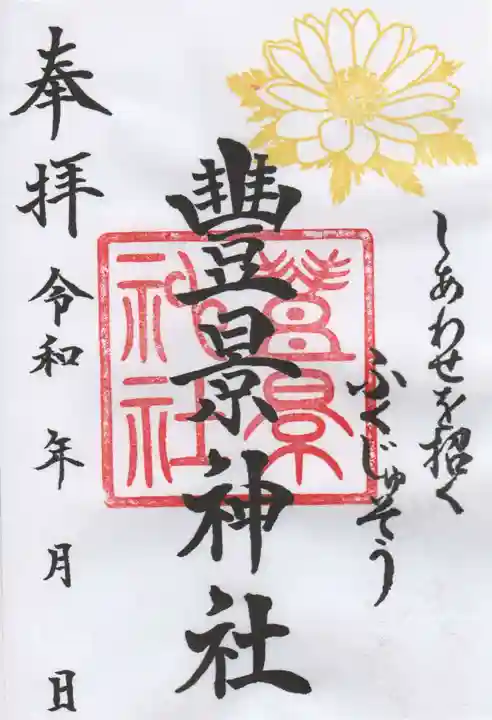 しあわせを招く
ふくじゅそう
豐景神社
豐景神社
奉拝
令和 年 月 日